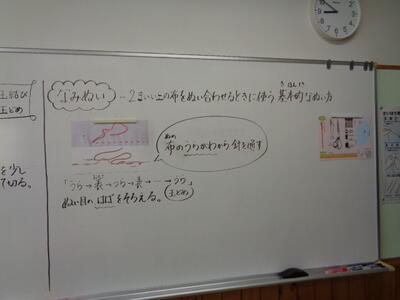 玉結び
玉どめ
を少し
て切る。
なみぬい…2まいの布をぬい合わせるときに使う基本的なぬい方
きほんてき
ぬの
布のうらがわから針を通す
「うら→表→うら→表→…→うら」
玉どめ
ぬい目のはばをそろえる。